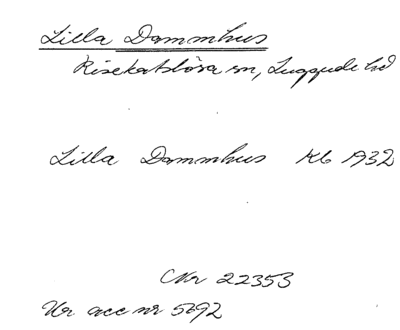 Lilla Dammhus
Risekatslösa sn, Luggude hd
Lilla Dammhus Kb 1932
CNr 22353
Ur acc nr 5692